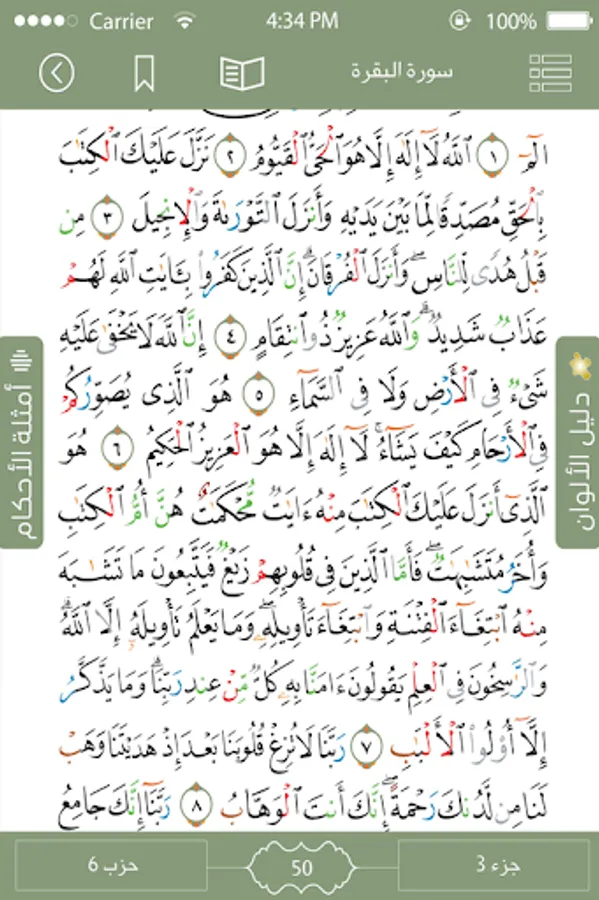 Carrier 4:34 PM 100%
سورة البقرة
الٓمٓ ١ ٱللَّهُ لَآ إِلَٰهَ إِلَّا هُوَ ٱلْحَىُّ ٱلْقَيُّومُ ٢ نَزَّلَ عَلَيْكَ ٱلْكِتَٰبَ
بِٱلْحَقِّ مُصَدِّقًا لِّمَا بَيْنَ يَدَيْهِ وَأَنزَلَ ٱلتَّوْرَىٰةَ وَٱلْإِنجِيلَ ٣ مِن
قَبْلُ هُدًى لِّلنَّاسِ وَأَنزَلَ ٱلْفُرْقَانَ ۗ إِنَّ ٱلَّذِينَ كَفَرُوا۟ بِـَٔايَٰتِ ٱللَّهِ لَهُمْ
عَذَابٌ شَدِيدٌ ۗ وَٱللَّهُ عَزِيزٌ ذُو ٱنتِقَامٍ ٤ إِنَّ ٱللَّهَ لَا يَخْفَىٰ عَلَيْهِ
شَىْءٌ فِى ٱلْأَرْضِ وَلَا فِى ٱلسَّمَآءِ ٥ هُوَ ٱلَّذِى يُصَوِّرُكُمْ
فِى ٱلْأَرْحَامِ كَيْفَ يَشَآءُ ۚ لَآ إِلَٰهَ إِلَّا هُوَ ٱلْعَزِيزُ ٱلْحَكِيمُ ٦ هُوَ
ٱلَّذِىٓ أَنزَلَ عَلَيْكَ ٱلْكِتَٰبَ مِنْهُ ءَايَٰتٌ مُّحْكَمَٰتٌ هُنَّ أُمُّ ٱلْكِتَٰبِ
وَأُخَرُ مُتَشَٰبِهَٰتٌ ۖ فَأَمَّا ٱلَّذِينَ فِى قُلُوبِهِمْ زَيْغٌ فَيَتَّبِعُونَ مَا تَشَٰبَهَ
مِنْهُ ٱبْتِغَآءَ ٱلْفِتْنَةِ وَٱبْتِغَآءَ تَأْوِيلِهِۦ ۗ وَمَا يَعْلَمُ تَأْوِيلَهُۥٓ إِلَّا ٱللَّهُ ۗ
وَٱلرَّٰسِخُونَ فِى ٱلْعِلْمِ يَقُولُونَ ءَامَنَّا بِهِۦ كُلٌّ مِّنْ عِندِ رَبِّنَا ۗ وَمَا يَذَّكَّرُ
إِلَّآ أُو۟لُوا۟ ٱلْأَلْبَٰبِ ٧ رَبَّنَا لَا تُزِغْ قُلُوبَنَا بَعْدَ إِذْ هَدَيْتَنَا وَهَبْ
لَنَا مِن لَّدُنكَ رَحْمَةً ۚ إِنَّكَ أَنتَ ٱلْوَهَّابُ ٨ رَبَّنَآ إِنَّكَ جَامِعُ
دليل الألوان
أمثلة الأحكام
جزء 3
50
حزب 6